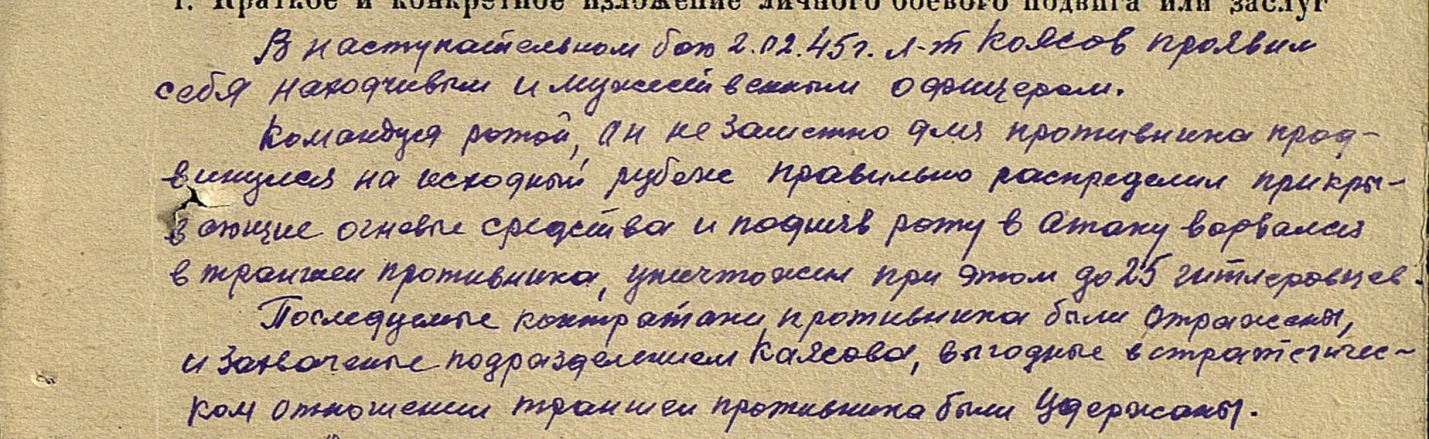 1. Краткое и конкретное изложение личного боевого подвига или заслуг
В наступательном бою 2.02.45г. л-т Коясов проявил
себя находчивым и мужественным офицером.
Командуя ротой, он незаметно для противника прод-
винулся на исходный рубеж правильно распределил прикры-
вающие огневые средства и подняв роту в атаку ворвался
в траншеи противника, уничтожил при этом до 25 гитлеровцев.
Последуемые контратаки противника были отражены,
и захваченые подразделением Каясова, выгодные в стратегичес-
ком отношении траншеи противника были удержаны.